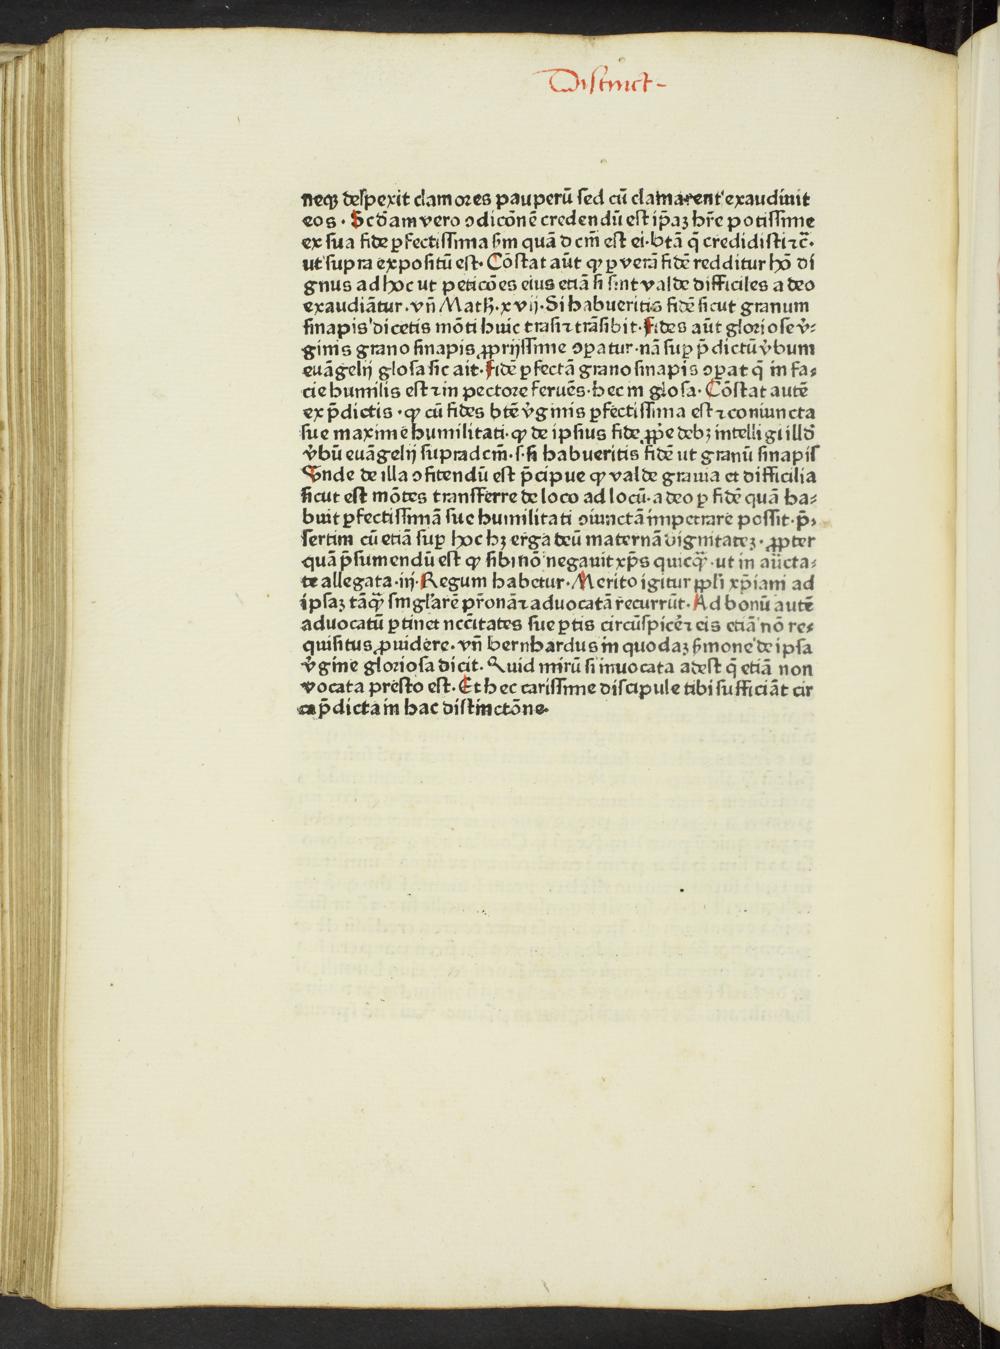 Distinct-
neqꝫ despexit clamores pauperū sed cū clamarent exaudiuit
eos · Scd̄am vero ↄdicōnē credendū est ip̄aꝫ hr̄e potissime
ex sua fide ꝑfectissima sm̄ quā d cm̄ est ei · btā q̄ credidisti ⁊c̄ ·
ut supra expositū est · Cōstat aūt ꝙ ꝑ verā fidē redditur hō di
gnus ad hoc ut peticōes eius etiā si sint valde difficiles adeo
exaudiātur · vn̄ Math · xvij · Si habueritis fidē sicut granum
sinapis dicetis mōti huic trāsi ⁊ trāsibit · Fides aūt gloriose v̄-
ginis grano sinapis ꝓprijssime ↄꝑatur · nā suꝑ p̄dictū v̄bum
euāgelij glosa sic ait · Fidē ꝑfectā grano sinapis ↄꝑat q̄ in fa-
cie humilis est ⁊ in pectore feruēs · hec in glosa · Cōstat autē
ex p̄dictis · ꝙ cū fides btē v̄ginis ꝑfectissima est ⁊ coniuncta
sue maxime humilitati · ꝙ de ipsius fide ꝓp̄e debꝫ intelligi illd̄
v̄bū euāgelij supradcm̄ · s · si habueritis fidē ut granū sinapis
Vnde de illa ↄfitendū est p̄cipue ꝙ valde grauia et difficilia
sicut est mōtes transferre de loco ad locū · adeo ꝑ fidē quā ha-
buit ꝑfectissimā sue humilitati ↄiunctā impetrare possit · p̄-
sertim cū etiā suꝑ hoc hꝫ erga deū maternā dignitateꝫ · ꝓpter
quā p̄sumendū est ꝙ sibi nō negauit xp̄s quicq̄ȝ · ut in aūcta-
te allegata · iij · Regum habetur · Merito igitur ppl̄i xp̄iani ad
ipsaꝫ tāq̄ȝ singl̄arē pr̄onā ⁊ aduocatā recurrūt · Ad bonū autē
aduocatū ꝑtinet necc̄itates sue ꝑtis circūspicēr ⁊ eis etiā nō re-
quisitus ꝓuidere · vn̄ bernhardus in quodaꝫ s̄mone de ipsa
v̄gine gloriosa dicit · Quid mirū si inuocata adest q̄ etiā non
vocata presto est · Et hec carissime discipule tibi sufficiāt cir
ca p̄dicta in hac distinctōne ·